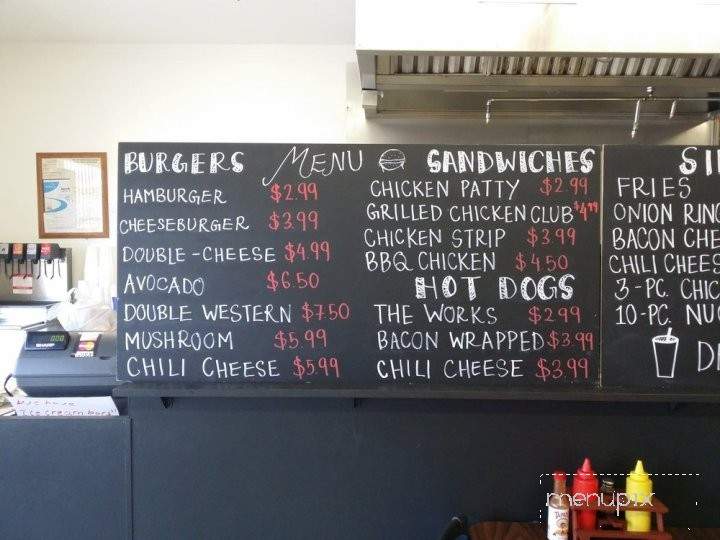 MENU
BURGERS
HAMBURGER $2.99
CHEESEBURGER $3.99
DOUBLE-CHEESE $4.99
AVOCADO $6.50
DOUBLE WESTERN $7.50
MUSHROOM $5.99
CHILI CHEESE $5.99
SANDWICHES
CHICKEN PATTY $2.99
GRILLED CHICKEN CLUB $4.99
CHICKEN STRIP $3.99
BBQ CHICKEN $4.50
HOT DOGS
THE WORKS $2.99
BACON WRAPPED $3.99
CHILI CHEESE $3.99
SI
FRIES
ONION RING
BACON CHE
CHILI CHEES
3-PC. CHIC
10-PC. NU
D
SHARP
We have
Ice cream bars
menupix